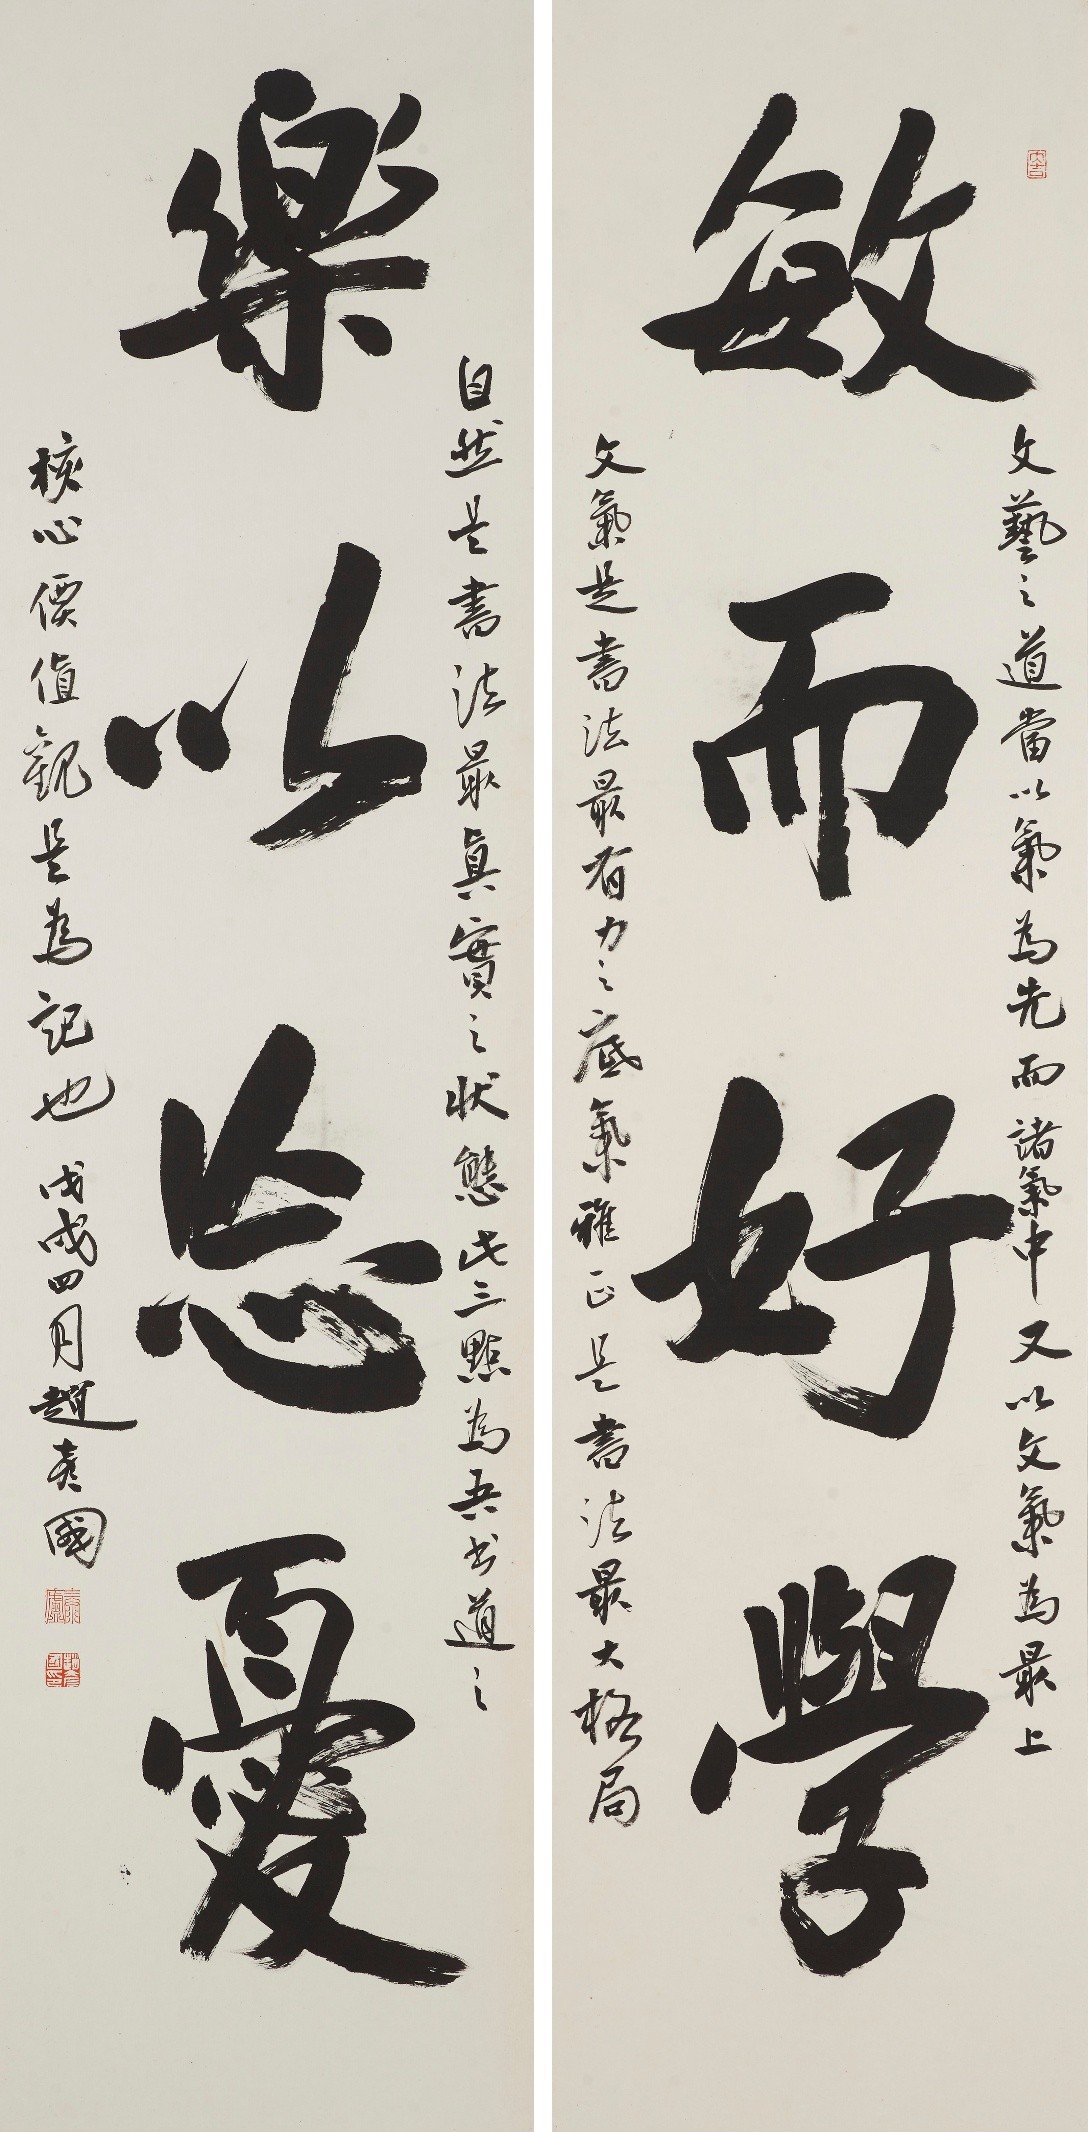 敏而好學
文藝之道當以氣為先而諸氣中又以文氣為最上
文氣是書法最有力之底氣雅正是書法最大格局
樂以忘憂
自然是書法最真實之狀態此三點為吾書道之
核心價值觀是為記也戊戌四月趙彥國